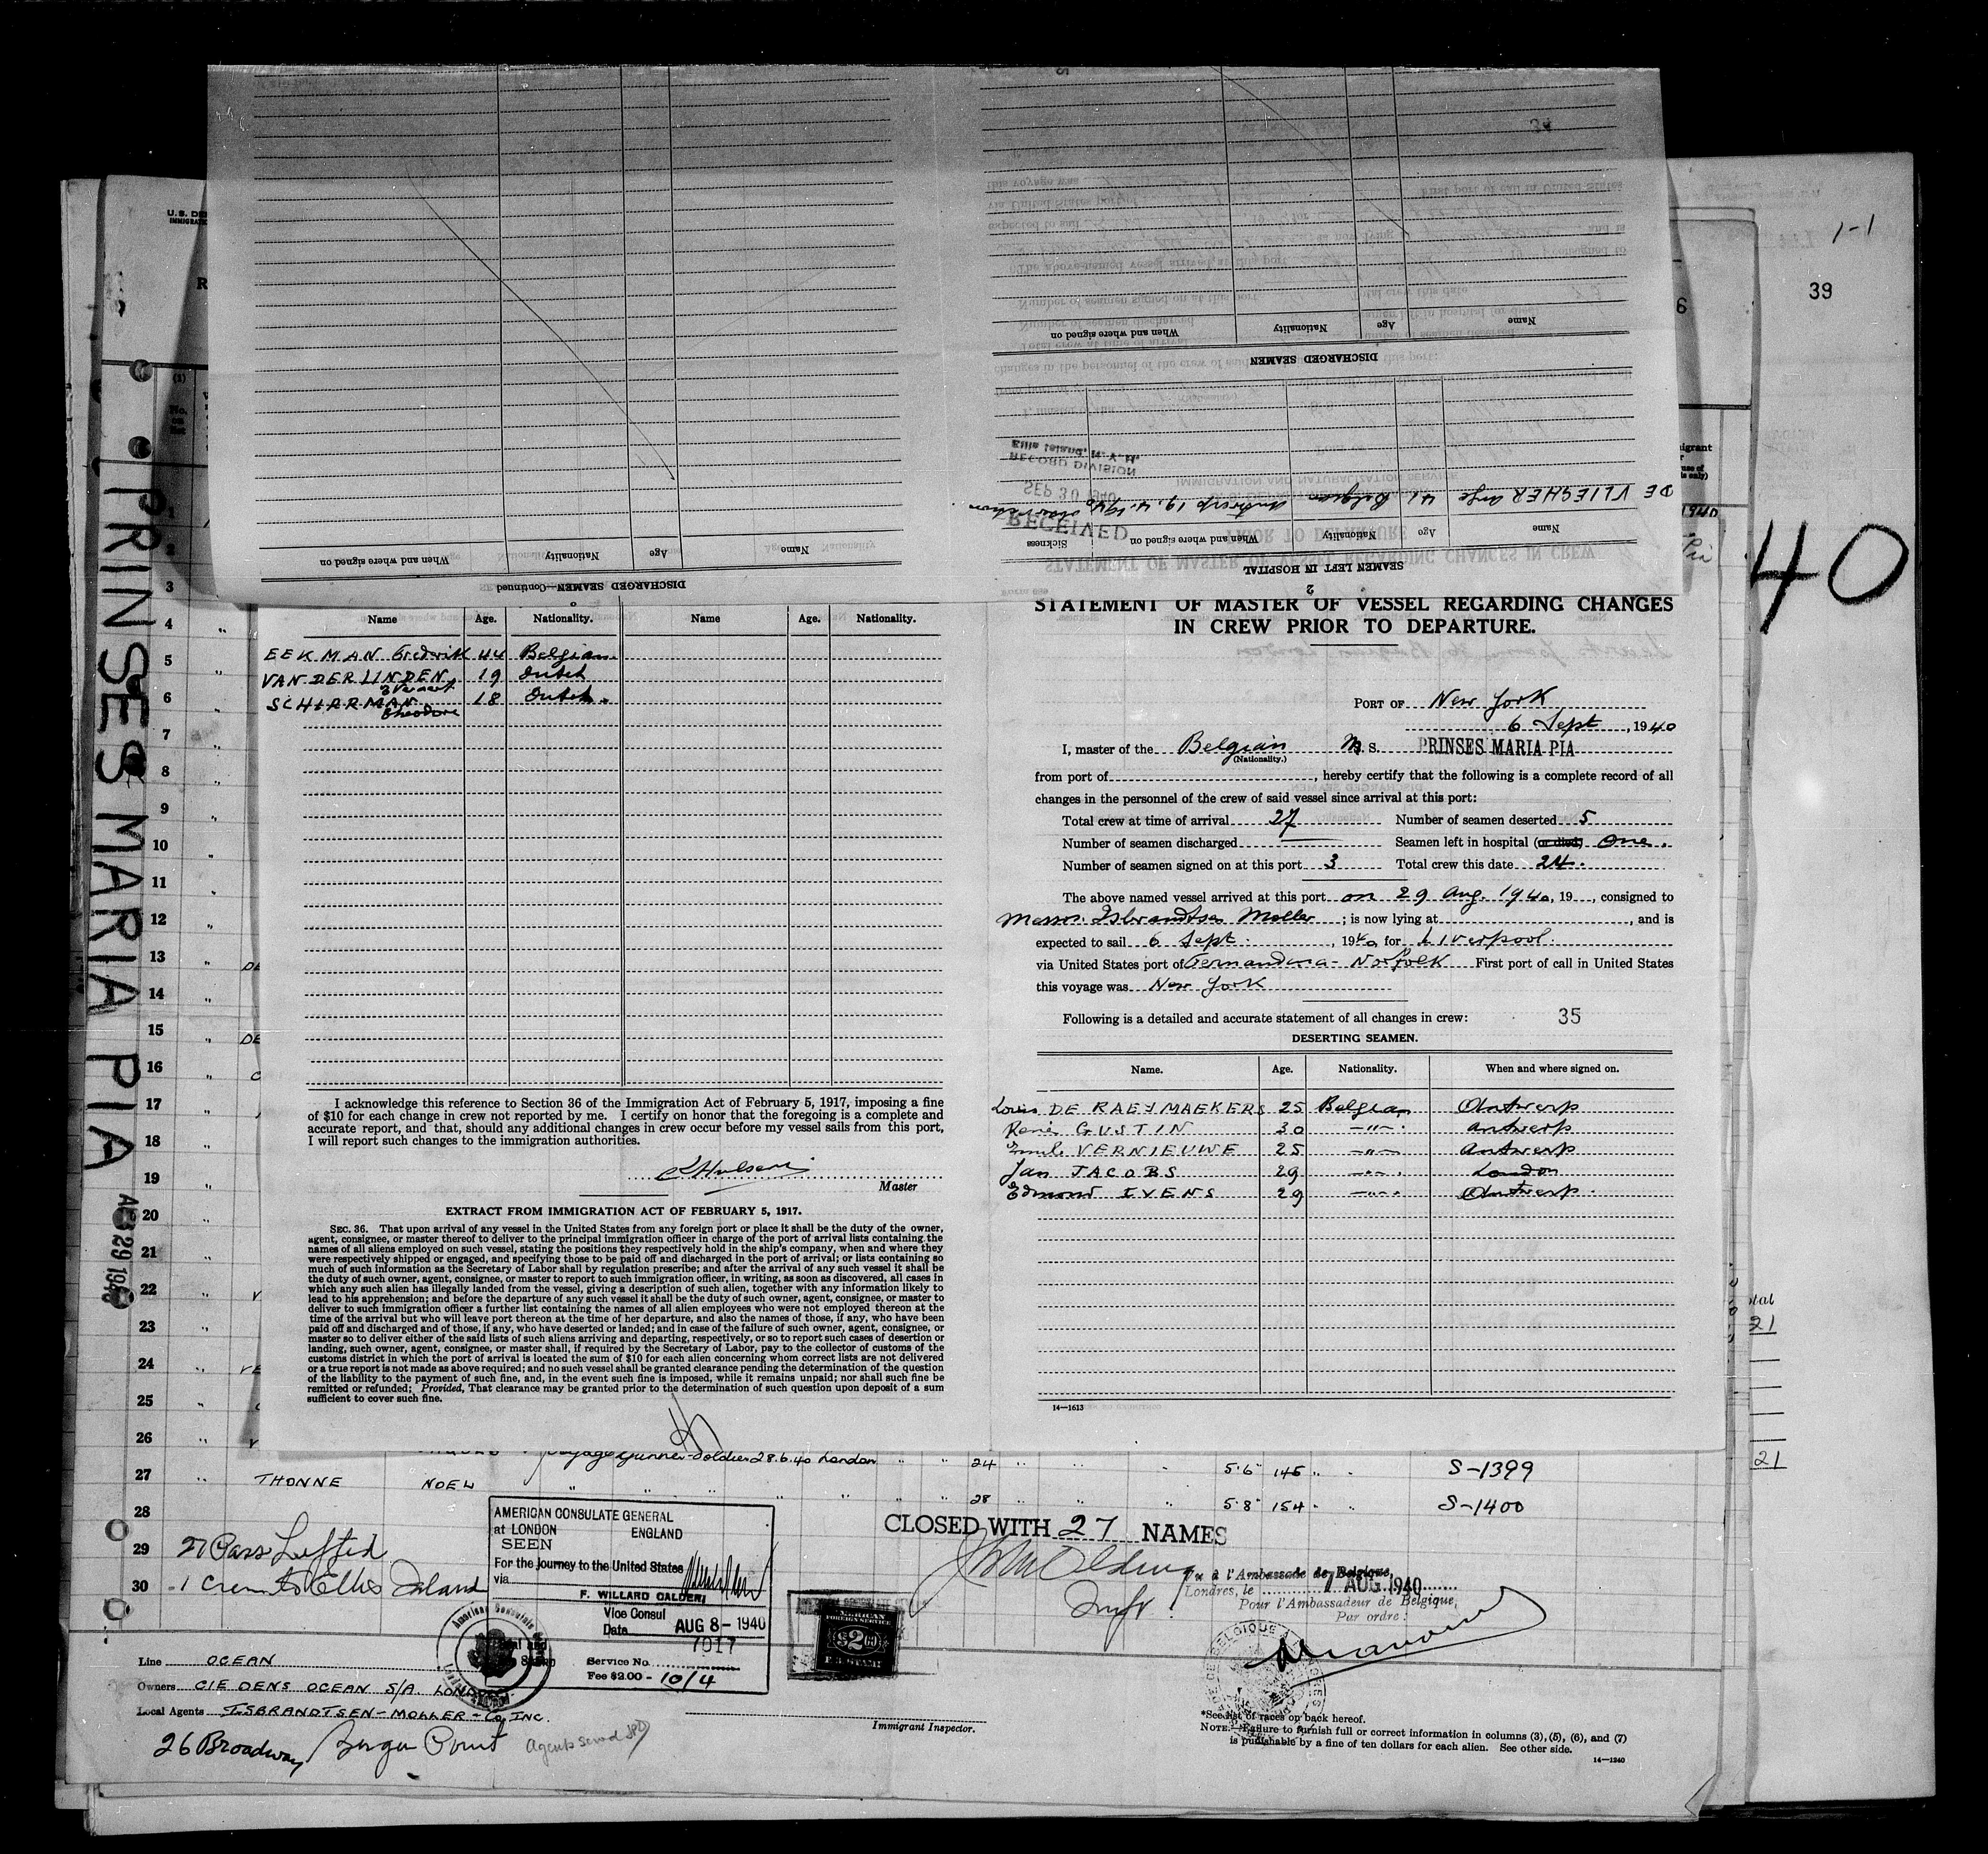 1-1
39
40
PRINSES MARIA PIA
AUG 29 1940
DISCHARGED SEAMEN—Continued
Name Age Nationality When and where signed on
SEAMEN LEFT IN HOSPITAL
Name Age Nationality When and where signed on Sickness
DE VLIEGHER Ange 41 Belgian Antwerp 19.4.1940
RECEIVED
SEP 30 1940
RECORD DIVISION
Ellis Island, N. Y. H.
DISCHARGED SEAMEN
Name Age Nationality When and where signed on
Name Age. Nationality. Name Age. Nationality.
EEKMAN Frederik 44 Belgian
VAN DER LINDEN 19 Dutch
SCHARMAN Theodore 18 Dutch
I acknowledge this reference to Section 36 of the Immigration Act of February 5, 1917, imposing a fine
of $10 for each change in crew not reported by me. I certify on honor that the foregoing is a complete and
accurate report, and that, should any additional changes in crew occur before my vessel sails from this port,
I will report such changes to the immigration authorities.
Master
EXTRACT FROM IMMIGRATION ACT OF FEBRUARY 5, 1917.
SEC. 36. That upon arrival of any vessel in the United States from any foreign port or place it shall be the duty of the owner,
agent, consignee, or master thereof to deliver to the principal immigration officer in charge of the port of arrival lists containing the
names of all aliens employed on such vessel, stating the positions they respectively hold in the ship's company, when and where they
were respectively shipped or engaged, and specifying those to be paid off and discharged in the port of arrival; or lists containing so
much of such information as the Secretary of Labor shall by regulation prescribe; and after the arrival of any such vessel it shall be
the duty of such owner, agent, consignee, or master to report to such immigration officer, in writing, as soon as discovered, all cases in
which any such alien has illegally landed from the vessel, giving a description of such alien, together with any information likely to
lead to his apprehension; and before the departure of any such vessel it shall be the duty of such owner, agent, consignee, or master to
deliver to such immigration officer a further list containing the names of all alien employees who were not employed thereon at the
time of the arrival but who will leave port thereon at the time of her departure, and also the names of those, if any, who have been
paid off and discharged and of those, if any, who have deserted or landed; and in case of the failure of such owner, agent, consignee, or
master so to deliver either of the said lists of such aliens arriving and departing, respectively, or so to report such cases of desertion or
landing, such owner, agent, consignee, or master shall, if required by the Secretary of Labor, pay to the collector of customs of the
customs district in which the port of arrival is located the sum of $10 for each alien concerning whom correct lists are not delivered
or a true report is not made as above required; and no such vessel shall be granted clearance pending the determination of the question
of the liability to the payment of such fine, and, in the event such fine is imposed, while it remains unpaid; nor shall such fine be
remitted or refunded; Provided, That clearance may be granted prior to the determination of such question upon deposit of a sum
sufficient to cover such fine.
STATEMENT OF MASTER OF VESSEL REGARDING CHANGES
IN CREW PRIOR TO DEPARTURE.
PORT OF New York
6 Sept, 1940
I, master of the Belgian M. S. PRINSES MARIA PIA
(Nationality.)
from port of , hereby certify that the following is a complete record of all
changes in the personnel of the crew of said vessel since arrival at this port:
Total crew at time of arrival 27 Number of seamen deserted 5
Number of seamen discharged Seamen left in hospital (or died) One.
Number of seamen signed on at this port 3 Total crew this date 24.
The above named vessel arrived at this port on 29 Aug. 1940, 19 , consigned to
Messrs. Isbrandtsen Moller ; is now lying at , and is
expected to sail 6 Sept. , 1940 for Liverpool.
via United States port of Fernandina - Norfolk First port of call in United States
this voyage was New York
Following is a detailed and accurate statement of all changes in crew: 35
DESERTING SEAMEN.
Name. Age. Nationality. When and where signed on.
Louis DE RAEYMAEKERS 25 Belgian Antwerp
René GUSTIN 30 —"—. Antwerp
Emile VERNIEUWE 25 —"— Antwerp
Jan JACOBS 29 —"—. London
Edmond IVENS 29 —"—. Antwerp.
14—1613
3
4
5
6
7
8
9
10
11
12
13
14
15
16
17
18
19
20
21
22
23
24
25
26
Gunner-Soldier 28.6.40 London " " 24 " " " 5.6 145 " " S-1399
27 " THONNE NOEL " " " " " " 28 " " " 5.8 154 " " S-1400
28
29
30
27 Pass Lifted
1 Crew to Ellis Island
AMERICAN CONSULATE GENERAL
at LONDON ENGLAND
SEEN
For the journey to the United States
via
F. WILLARD CALDER
Vice Consul
Date AUG 8 - 1940
Service No. 7017
Fee $2.00 - 10/4
AMERICAN
FOREIGN SERVICE
$2.00
CLOSED WITH 27 NAMES
Vu à l'Ambassade de Belgique,
Londres, le 7 AUG. 1940
Pour l'Ambassadeur de Belgique,
Par ordre:
Line OCEAN
Owners CIE DENS OCEAN S/A. LONDON
Local Agents ISBRANDTSEN-MOLLER-Co INC.
26 Broadway
Immigrant Inspector.
*See list of races on back hereof.
NOTE.—Failure to furnish full or correct information in columns (3), (5), (6), and (7)
is punishable by a fine of ten dollars for each alien. See other side.
14—1240
21
21